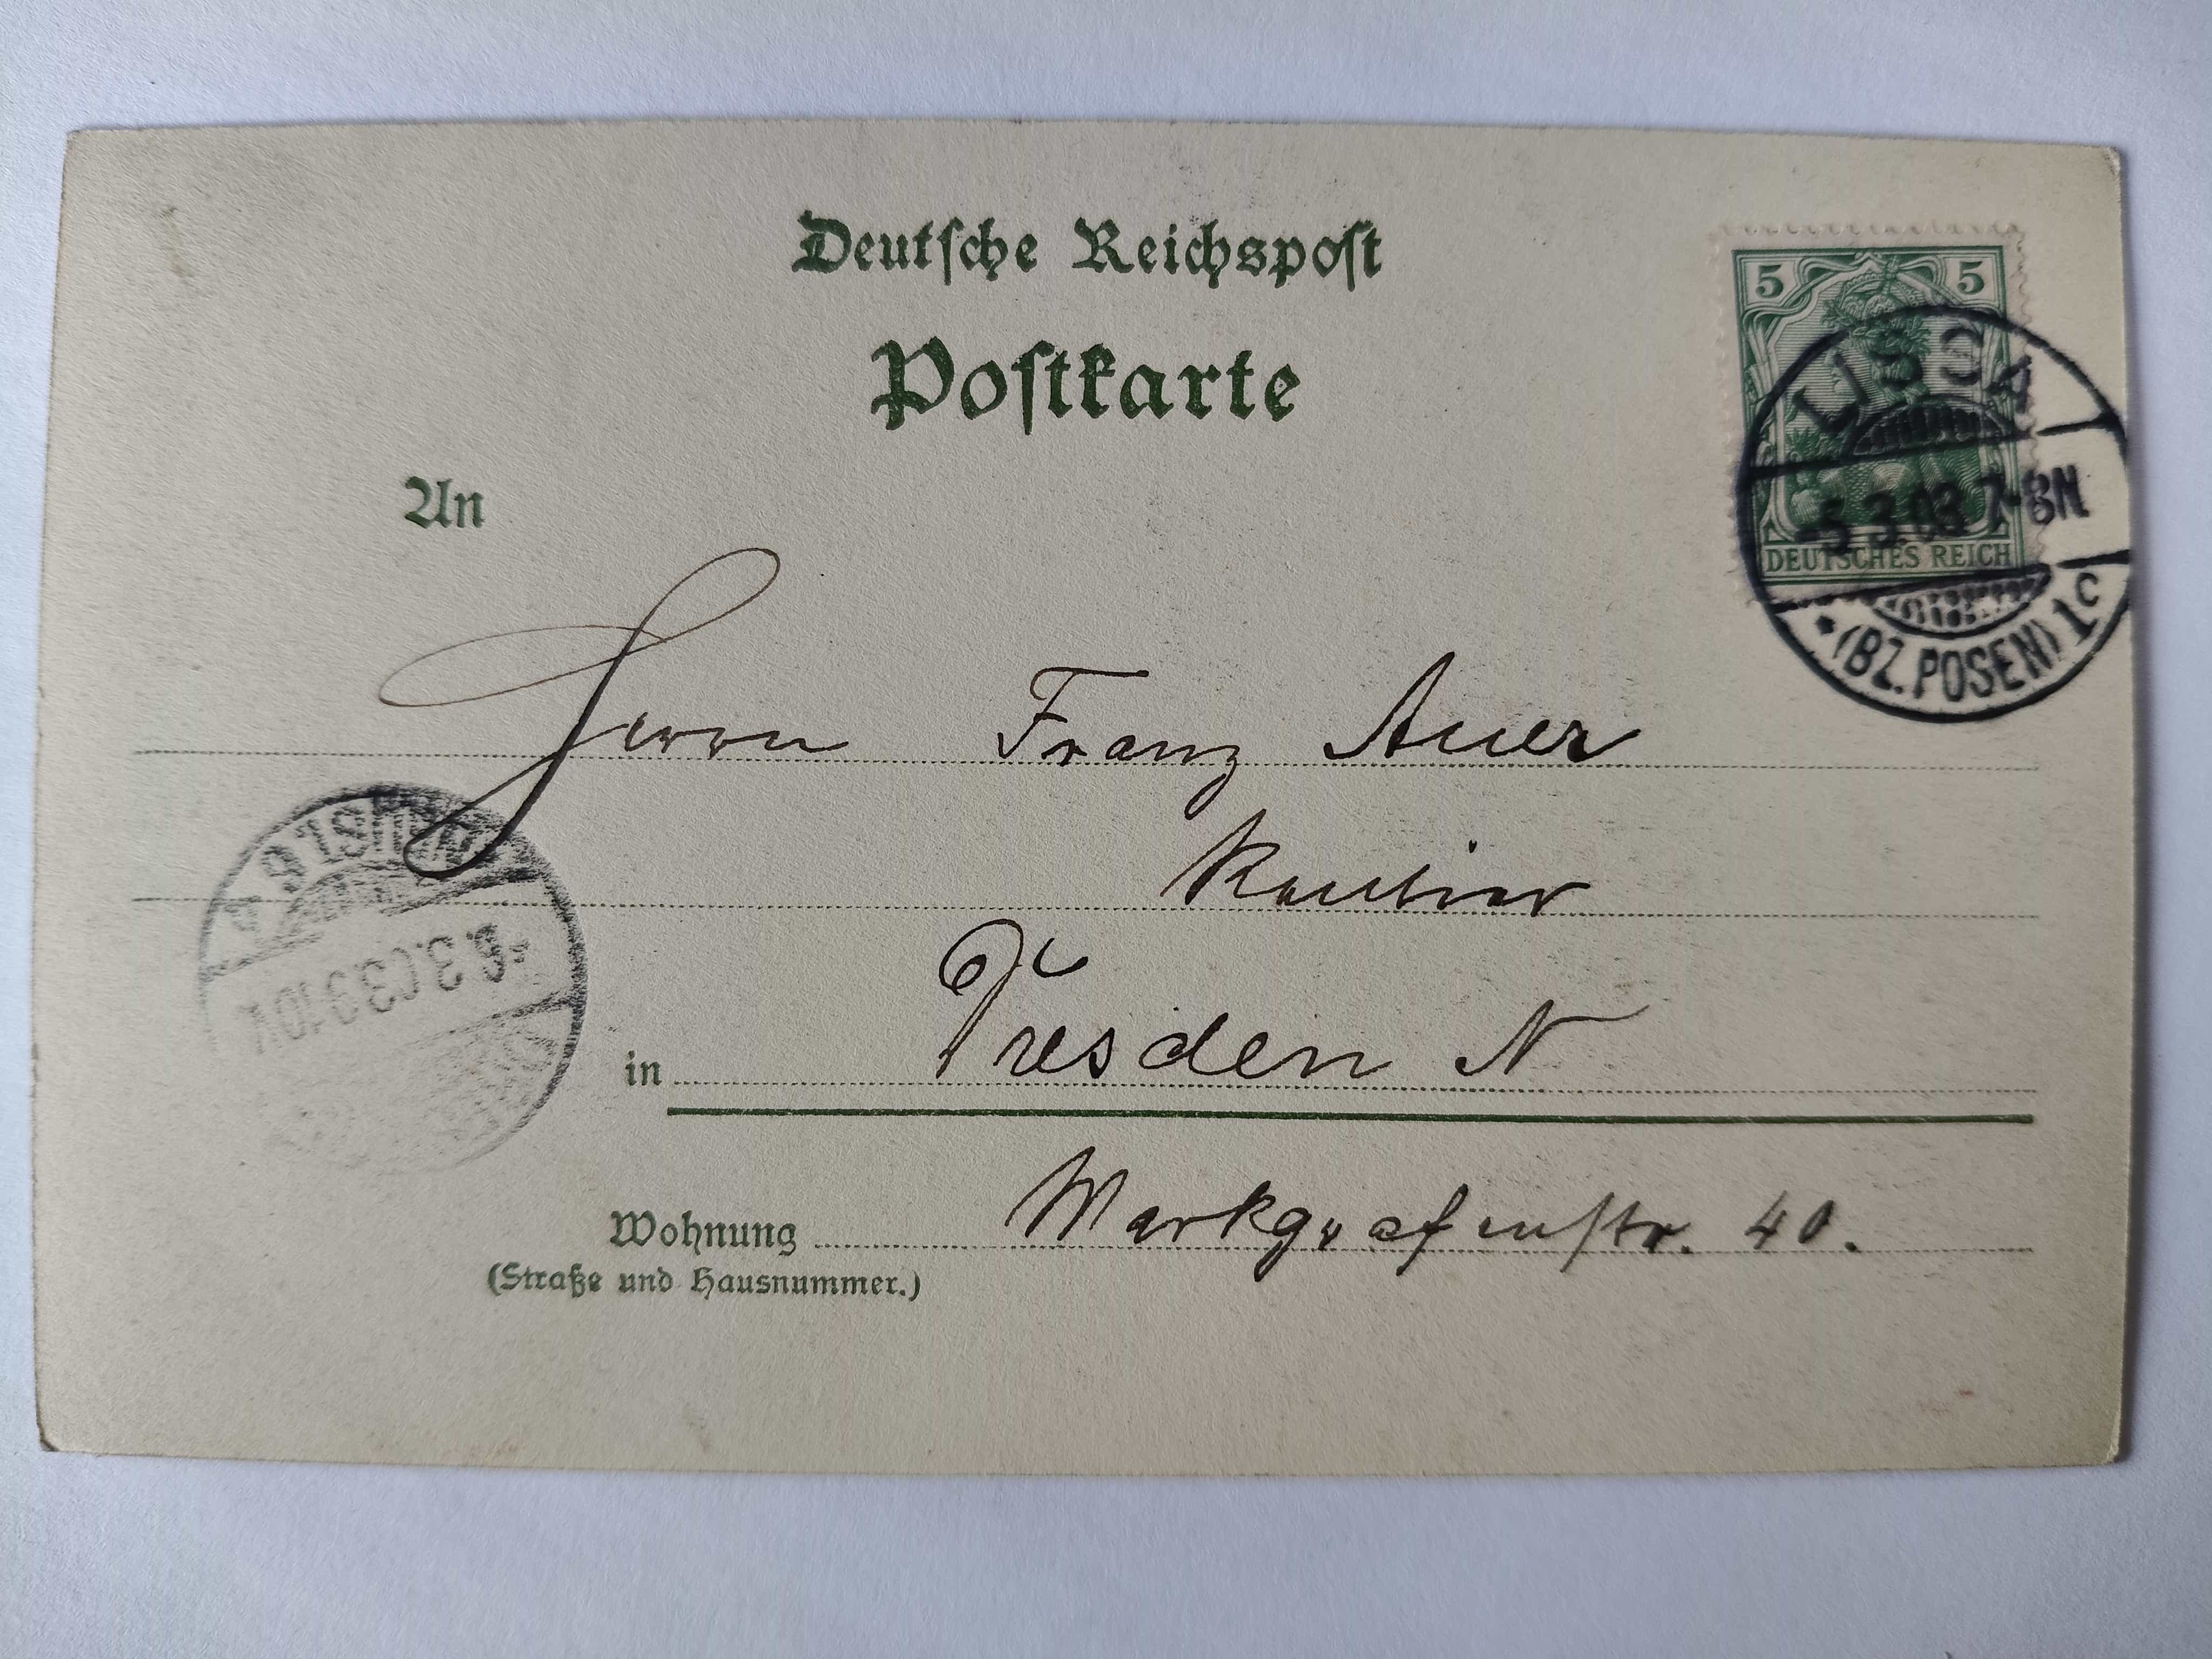 Deutsche Reichspost
Postkarte
5 5
DEUTSCHES REICH
LISSA
-5.3.03 7-8N
*(BZ. POSEN) 1c
An
Herrn Franz Auer
Rentier
-6.3.03 9-10V
in Dresden N
Wohnung Markgrafenstr. 40.
(Straße und Hausnummer.)